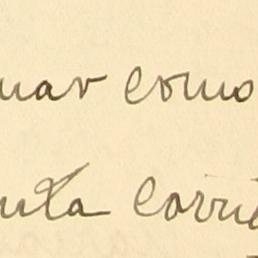 uar como
uta corri